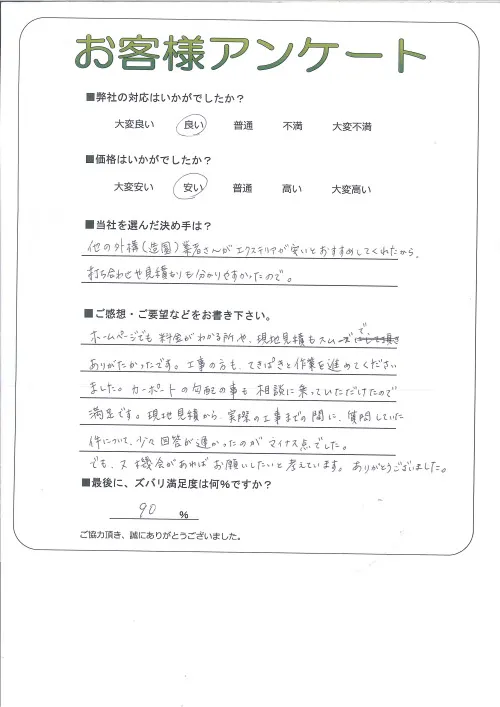 お客様アンケート
■弊社の対応はいかがでしたか？
大変良い 良い 普通 不満 大変不満
■価格はいかがでしたか？
大変安い 安い 普通 高い 大変高い
■当社を選んだ決め手は？
他の外構(造園)業者さんがエクステリアが安いとおすすめしてくれたから、
打ち合わせや見積もりも分かりやすかったので。
■ご感想・ご要望などをお書き下さい。
ホームページでも料金がわかる所や、現地見積もスムーズで
ありがたかったです。工事の方も、てきぱきと作業を進めてください
ました。カーポートの勾配の事も相談に乗っていただけたので
満足です。現地見積から、実際の工事までの間に、質問していた
件について、少々回答が遅かったのがマイナス点でした。
でも、又機会があればお願いしたいと考えています。ありがとうございました。
■最後に、ズバリ満足度は何％ですか？
90 ％
ご協力頂き、誠にありがとうございました。